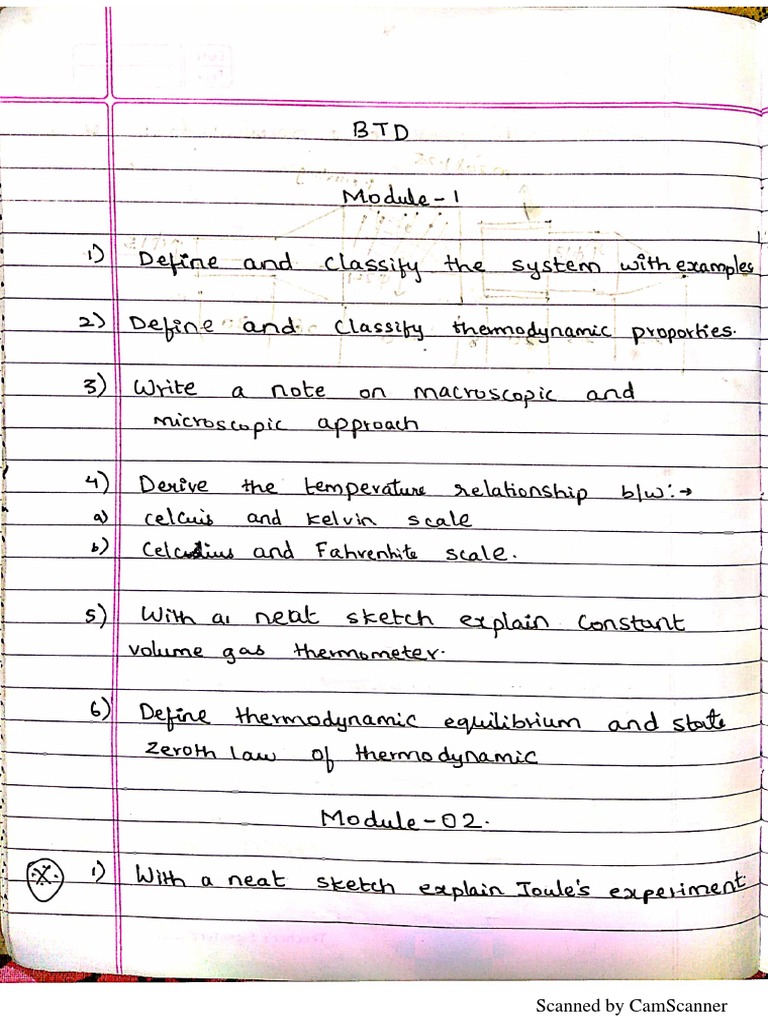 BTD
Module-1
1) Define and classify the system with examples
2) Define and classify thermodynamic proporties.
3) Write a note on macroscopic and
microscopic approach
4) Derive the temperature relationship b/w:→
a) celcuis and kelvin scale
b) and Fahrenhite scale.
5) With a neat sketch explain constant
volume gas thermometer.
6) Define thermodynamic equilibrium and state
zeroth law of thermodynamic
Module-02.
1) With a neat sketch explain Joule's experiment
Scanned by CamScanner